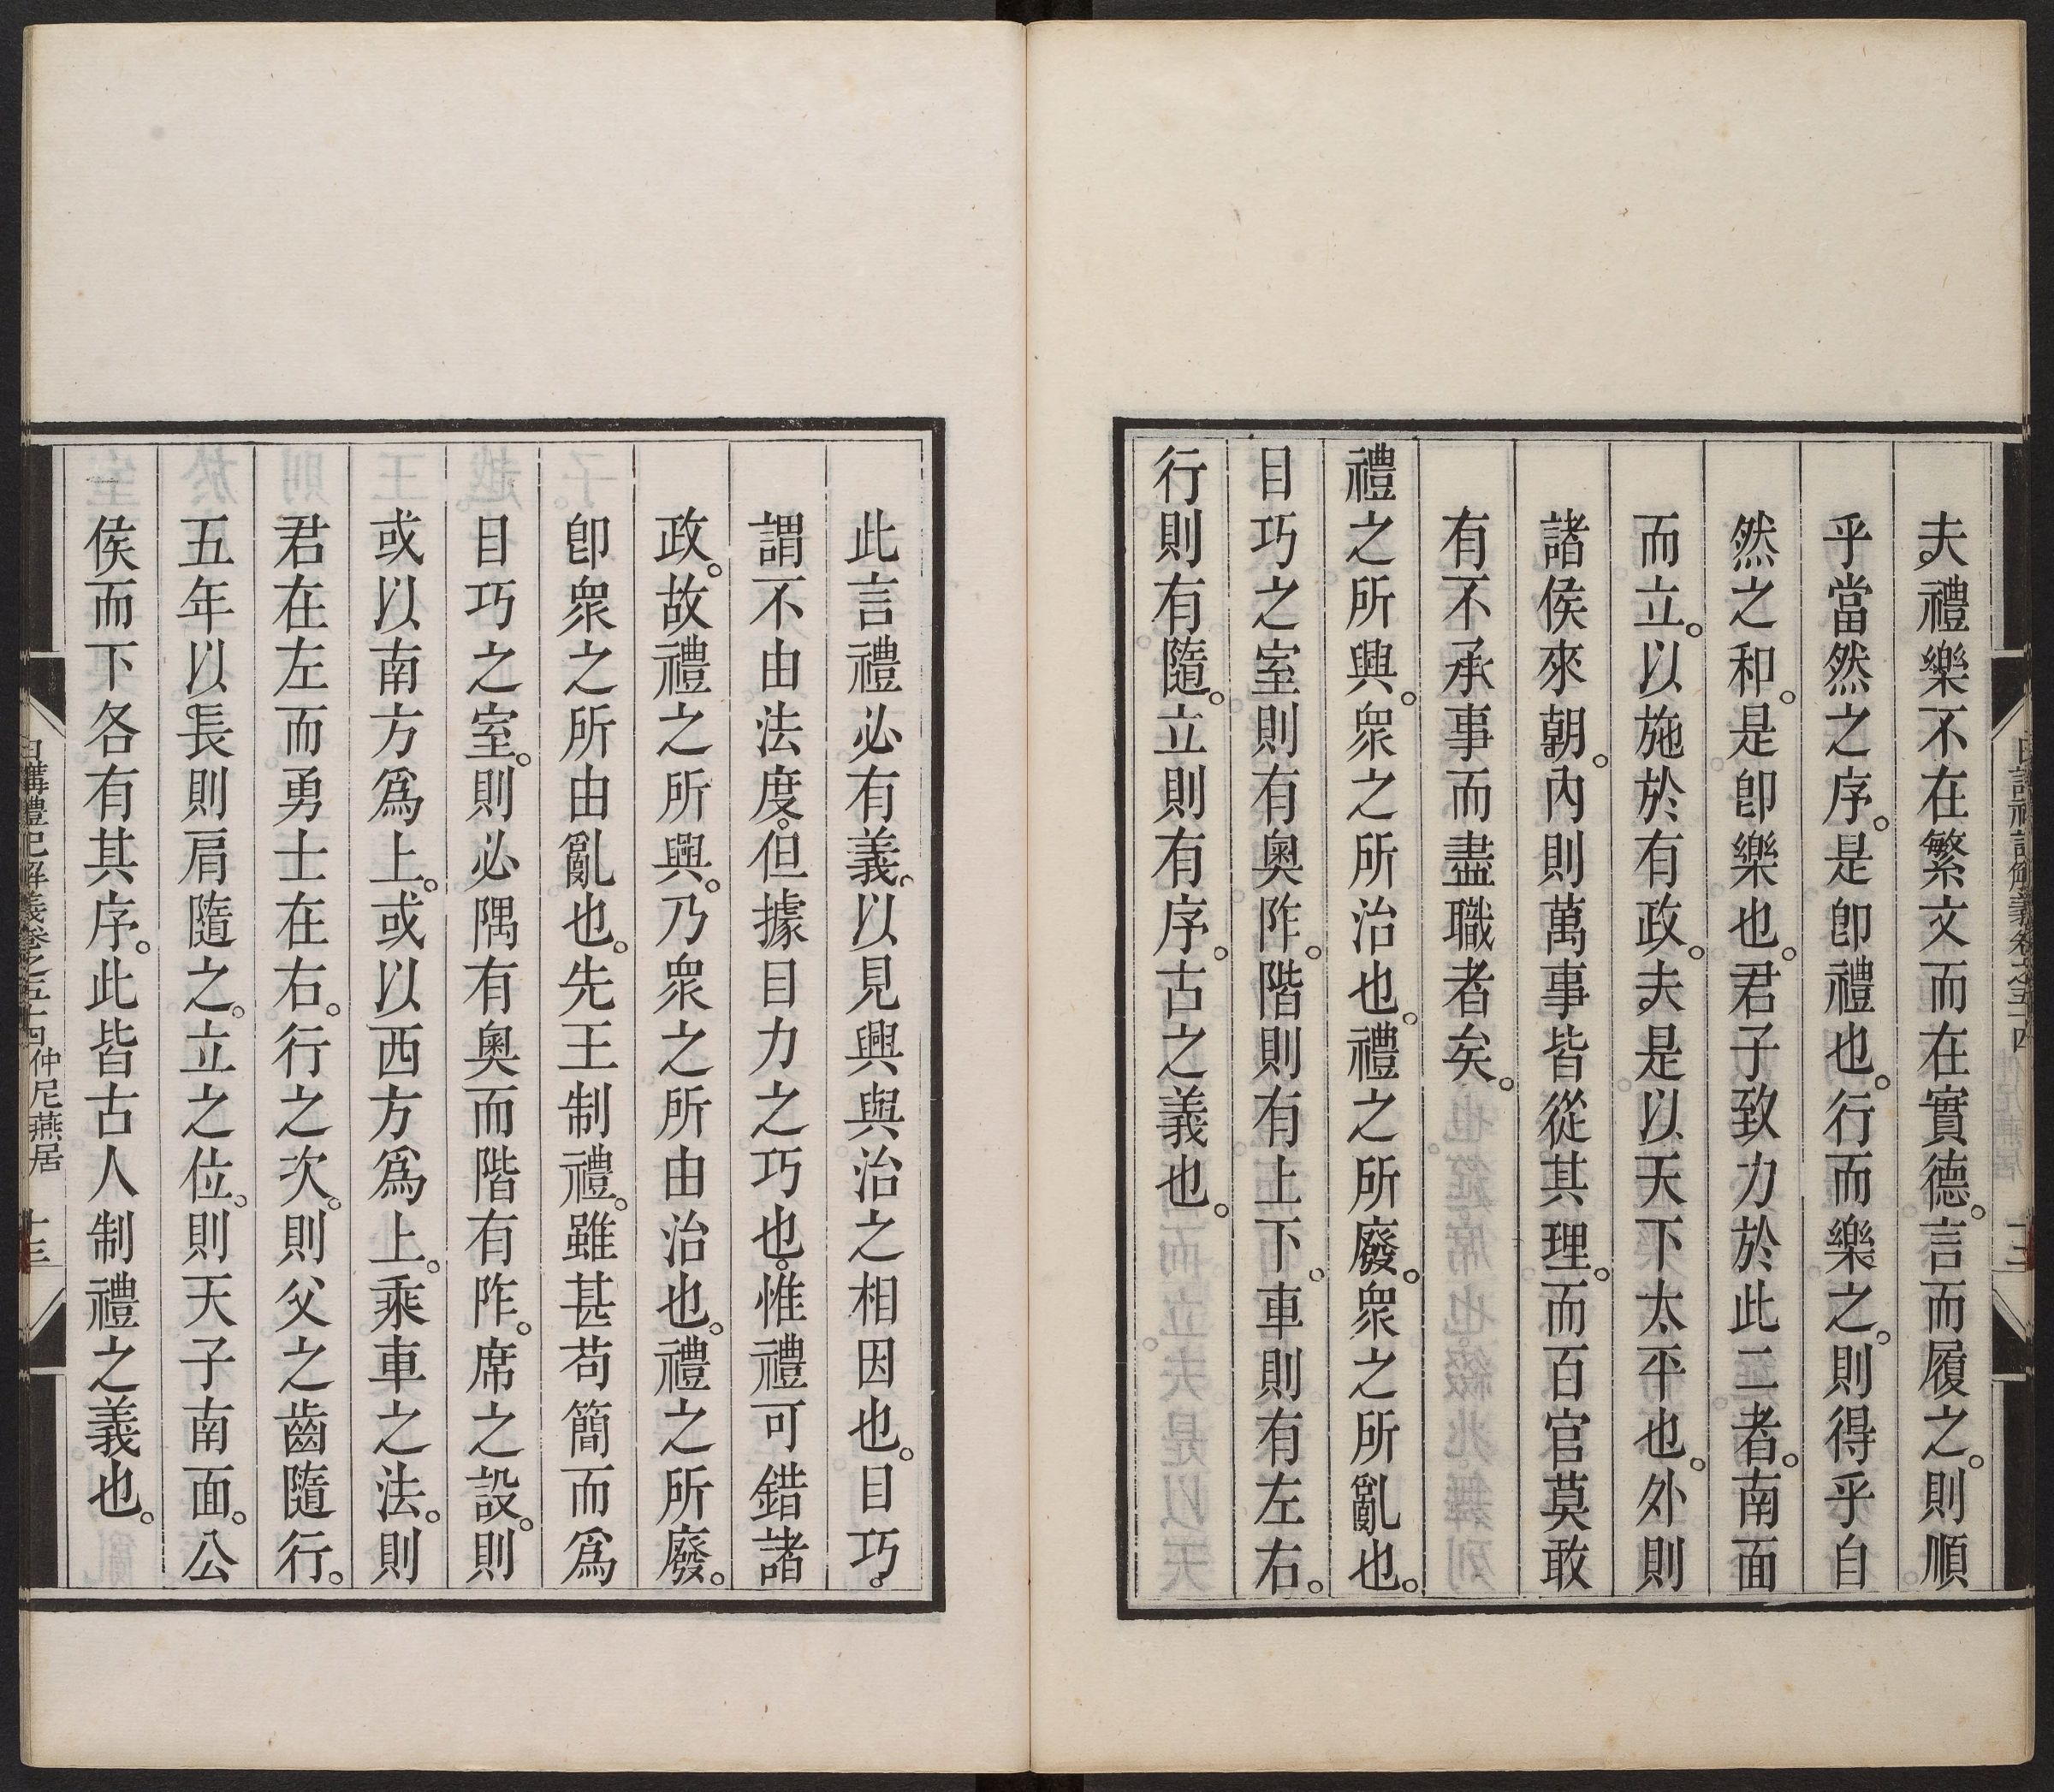 夫禮樂不在繁文而在實德。言而履之。則順
乎當然之序。是卽禮也。行而樂之。則得乎自
然之和。是卽樂也。君子致力於此二者。南面
而立。以施於有政。夫是以天下太平也。外則
諸侯來朝。內則萬事皆從其理。而百官莫敢
有不承事而盡職者矣。
禮之所興。衆之所治也。禮之所廢。衆之所亂也。
目巧之室則有奧阼。階則有上下。車則有左右。
行則有隨。立則有序。古之義也。
此言禮必有義。以見興與治之相因也。目巧。
謂不由法度。但據目力之巧也。惟禮可錯諸
政。故禮之所興。乃衆之所由治也。禮之所廢。
卽衆之所由亂也。先王制禮。雖甚苟簡而爲
目巧之室。則必隅有奧而階有阼。席之設。則
或以南方爲上。或以西方爲上。乘車之法。則
君在左而勇士在右。行之次。則父之齒隨行。
五年以長則肩隨之。立之位。則天子南面。公
侯而下各有其序。此皆古人制禮之義也。
日講禮記解義卷之五十四 仲尼燕居 十三